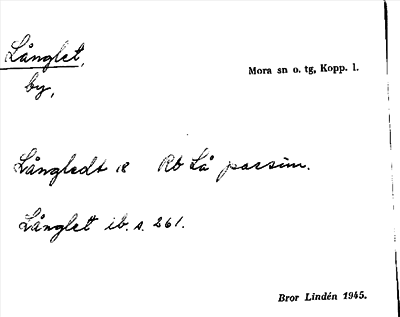 Långlet,
Mora sn o. tg, Kopp. l.
by,
Långledt  Rb Lå passim.
Långlet ib. s. 261.
Bror Lindén 1945.